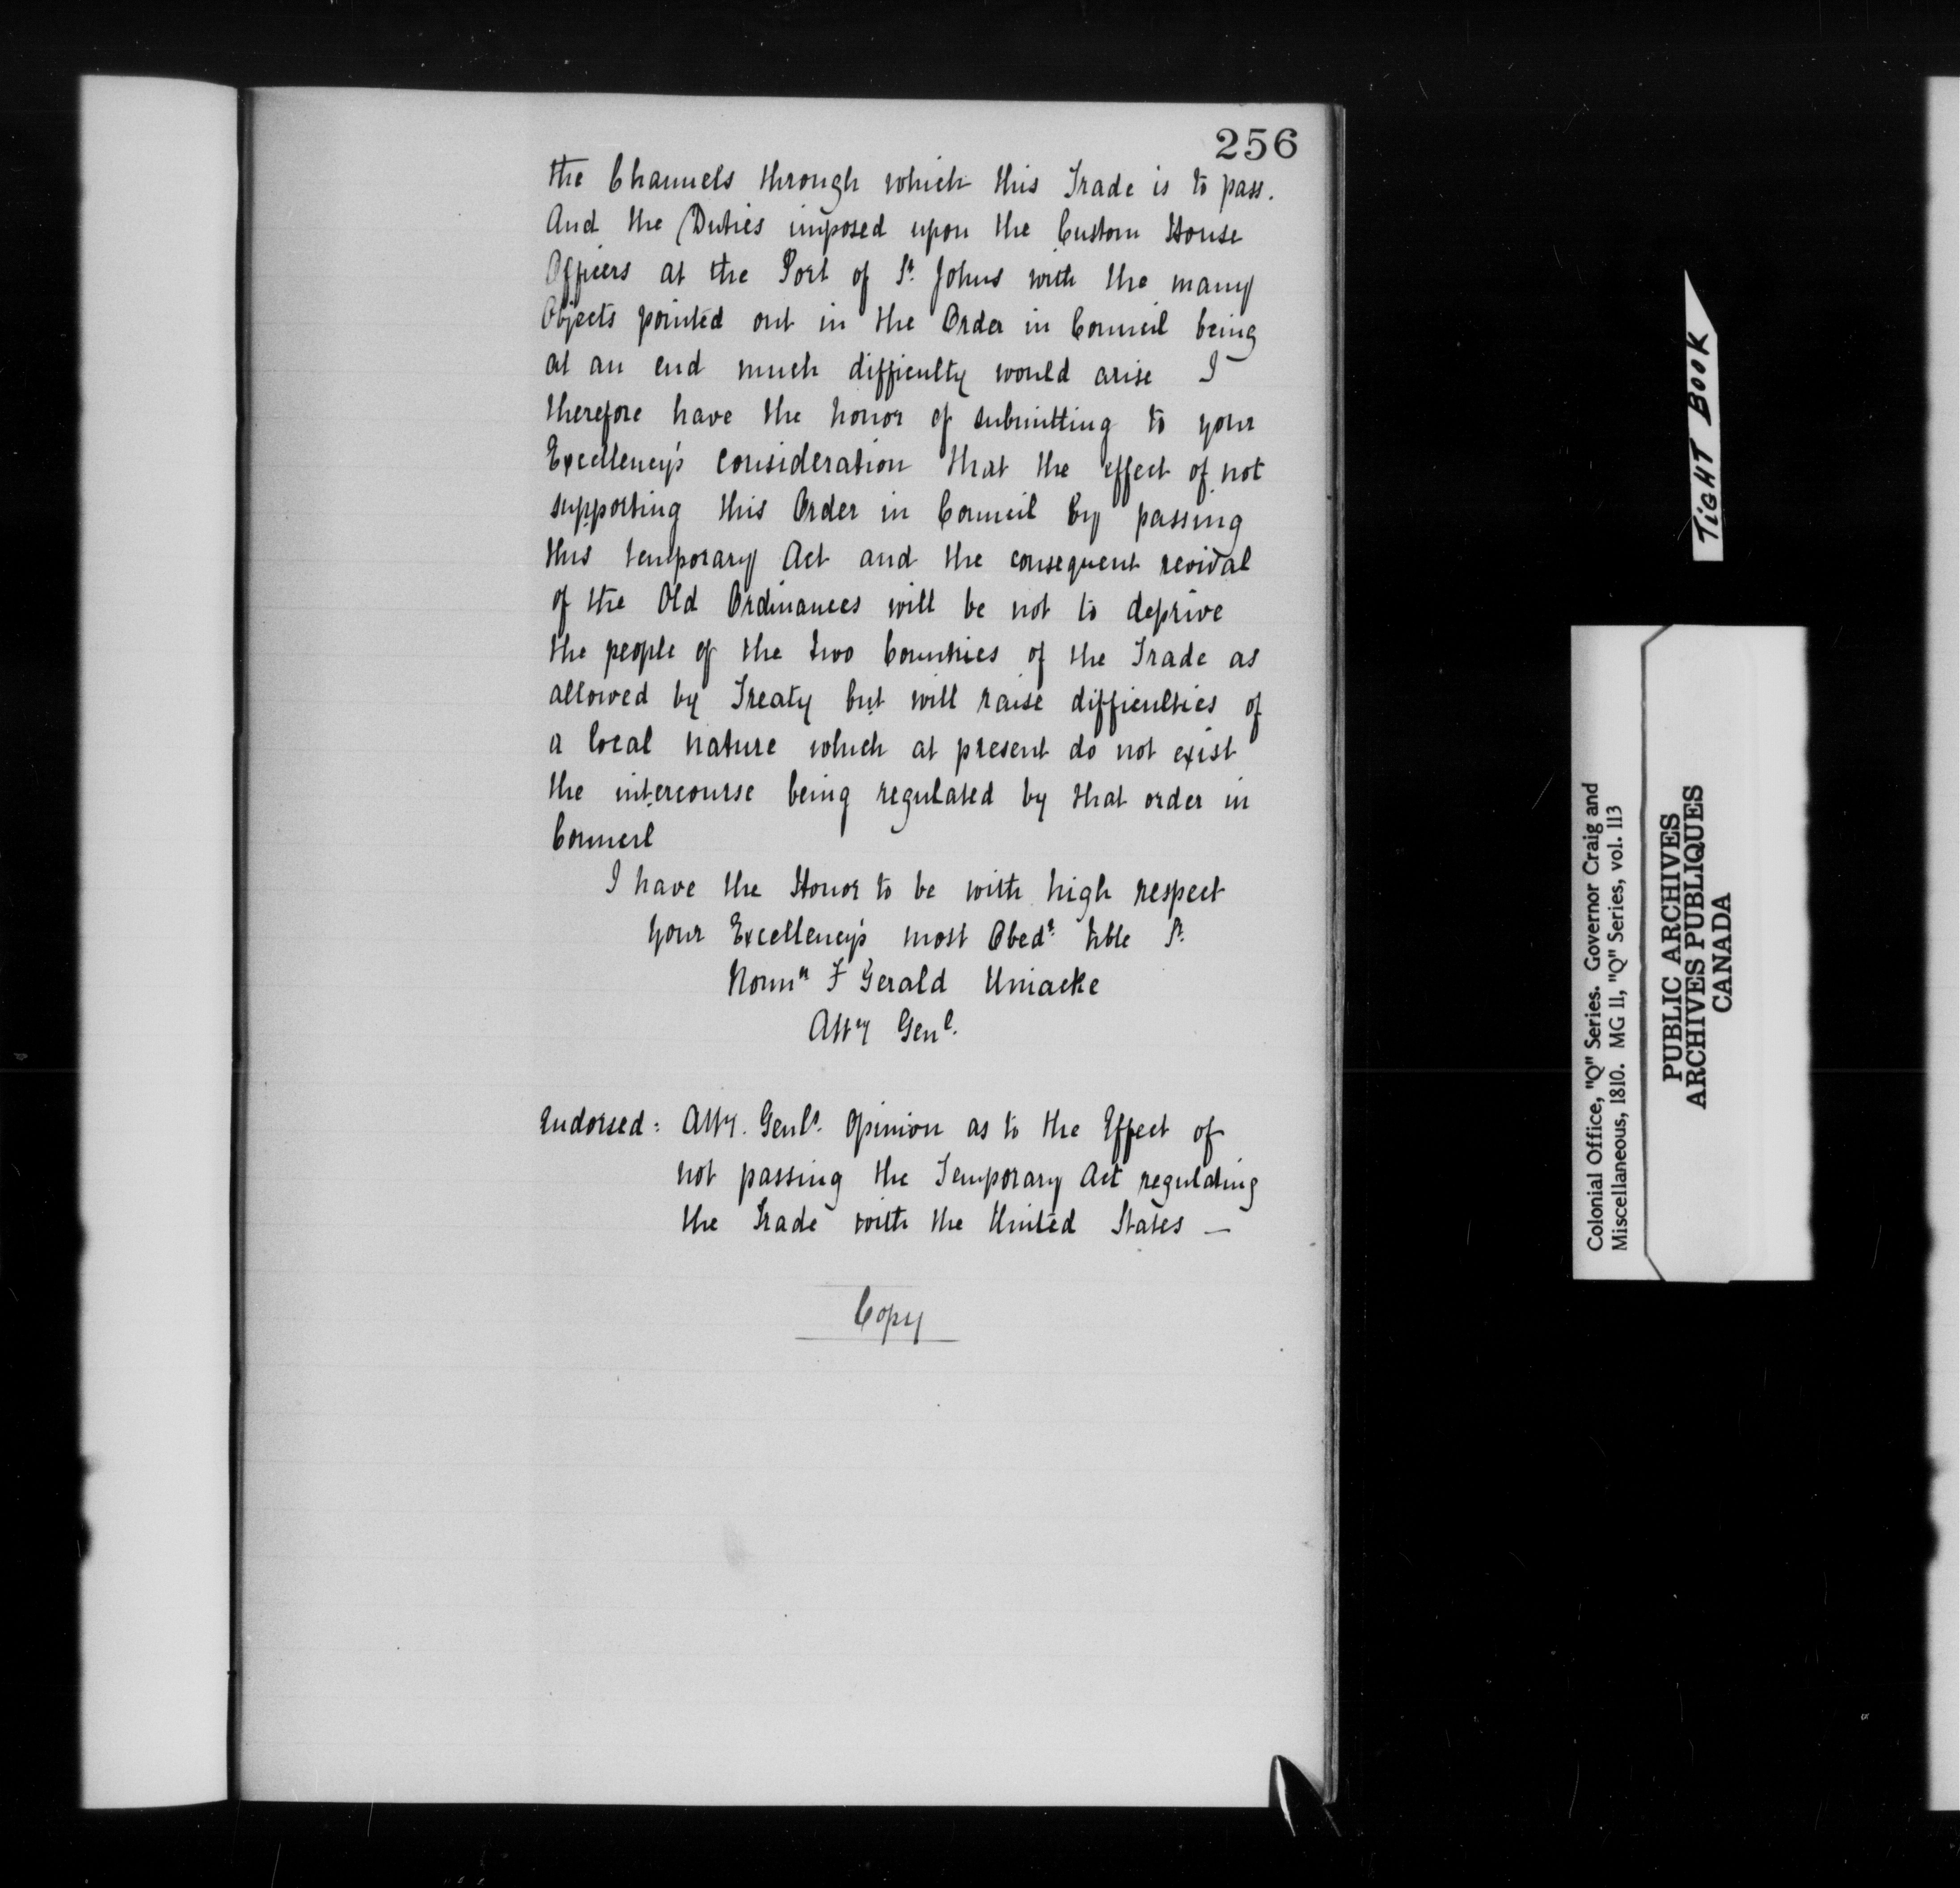 256
the Channels through which this Trade is to pass.
And the Duties imposed upon the Custom House
Officers at the Port of St. Johns with the many
Objects pointed out in the Order in Council being
at an end much difficulty would arise I
therefore have the honor of submitting to your
Excellency's consideration that the effect of not
supporting this Order in Council by passing
this temporary Act and the consequent revival
of the Old Ordinances will be not to deprive
the people of the two Countries of the Trade as
allowed by Treaty but will raise difficulties of
a local nature which at present do not exist
the intercourse being regulated by that order in
Council
I have the Honor to be with high respect
your Excellency's most Obedt hble St.
Normn F Gerald Uniacke
Atty Genl.
Endorsed: Atty. Genls. Opinion as to the Effect of
not passing the Temporary Act regulating
the Trade with the United States —
Copy
TIGHT BOOK
Colonial Office, "Q" Series. Governor Craig and
Miscellaneous, 1810. MG 11, "Q" Series, vol. 113
PUBLIC ARCHIVES
ARCHIVES PUBLIQUES
CANADA